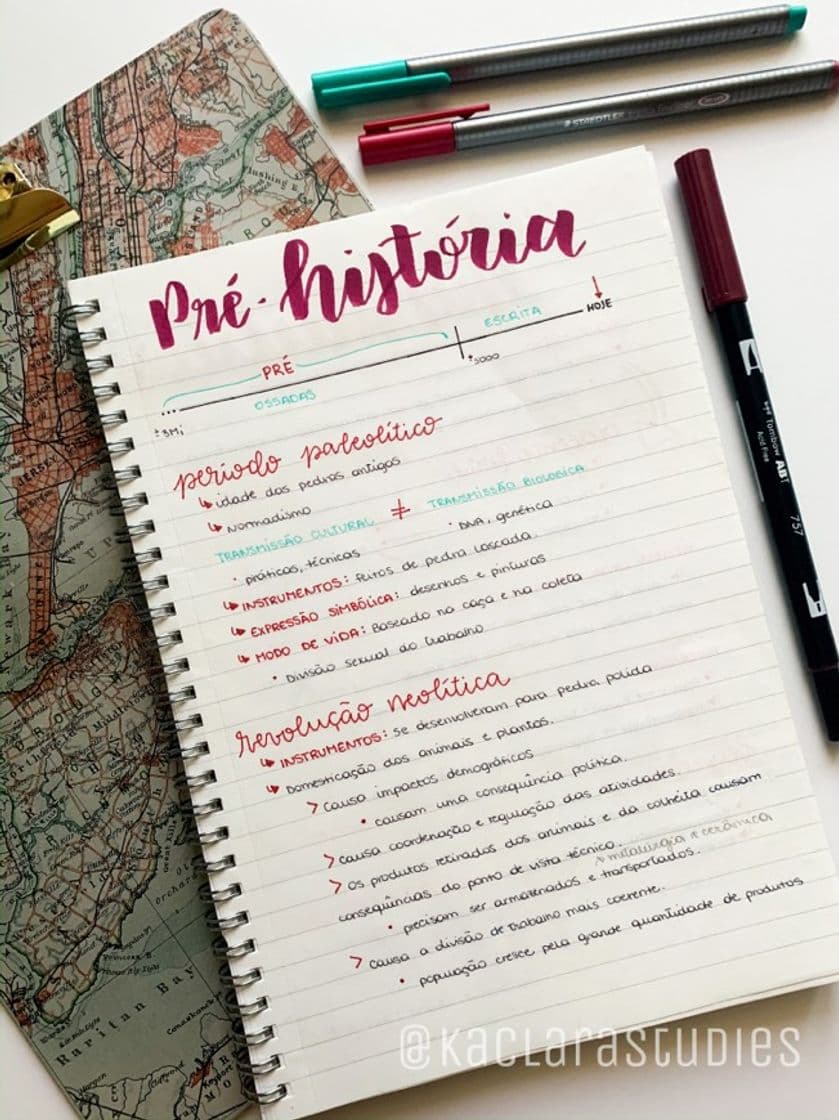 Flushing B.
STAEDTLER
Pré-história
PRÉ
ESCRITA
HOJE
OSSADAS
±3000
±3Mi
período paleolítico
↳ idade das pedras antigas
↳ Normadismo
TRANSMISSÃO CULTURAL ≠ TRANSMISSÃO BIOLÓGICA
• práticas, técnicas
• DNA, genética
↳ INSTRUMENTOS: Feitos de pedra lascada.
↳ EXPRESSÃO SIMBÓLICA: desenhos e pinturas
↳ MODO DE VIDA: Baseado na caça e na coleta
• Divisão sexual do trabalho
revolução neolítica
↳ INSTRUMENTOS: Se desenvolveram para pedra polida
↳ Domesticação dos animais e plantas.
> Causa impactos demográficos
• causam uma consequência política.
> causa coordenação e regulação das atividades.
> Os produtos retirados dos animais e da colheita causam
consequências do ponto de vista técnico.
metalurgia e cerâmica
• precisam ser armazenados e transportados.
> causa a divisão de trabalho mais coerente.
• população cresce pela grande quantidade de produtos
Tombow ABT
Acid Free
757
Raritan Bay
@KACLARASTUDIES